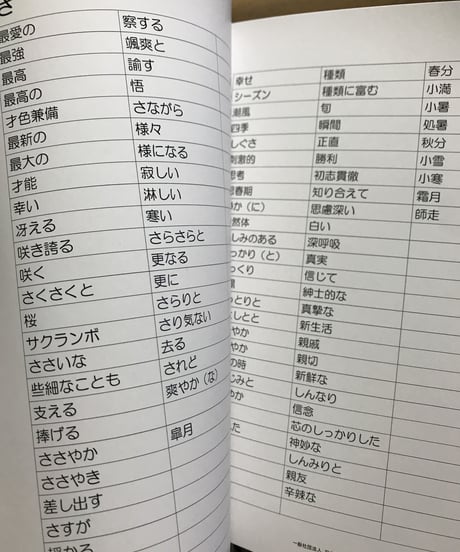 さ
最愛の
最強
最高
最高の
才色兼備
最新の
最大の
才能
幸い
冴える
咲き誇る
咲く
さくさくと
桜
サクランボ
ささいな
些細なことも
支える
捧げる
ささやか
ささやき
差し出す
さすが
授かる
察する
颯爽と
諭す
悟
さながら
様々
様になる
寂しい
淋しい
寒い
さらさらと
更なる
更に
さらりと
さり気ない
去る
されど
爽やか（な）
皐月
幸せ
シーズン
潮風
四季
しぐさ
刺激的
思春期
やか（に）
然体
しみのある
っかり（と）
っくり
っとりと
しとと
やか
の時
じみと
やか
た
種類
種類に富む
旬
瞬間
正直
勝利
初志貫徹
知り合えて
思慮深い
白い
深呼吸
真実
信じて
紳士的な
真摯な
新生活
親戚
親切
新鮮な
しんなり
信念
芯のしっかりした
神妙な
しんみりと
親友
辛辣な
春分
小満
小暑
処暑
秋分
小雪
小寒
霜月
師走
一般社団法人